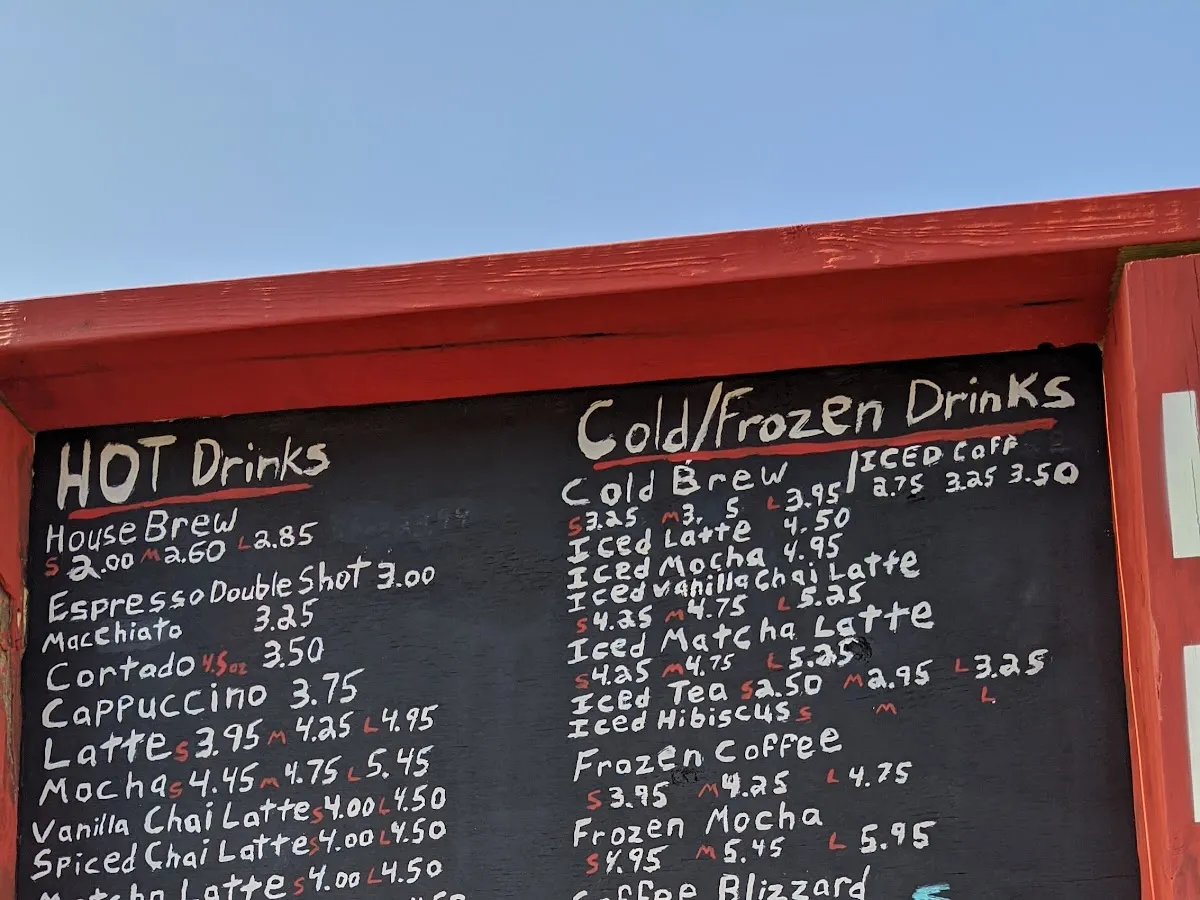 HOT Drinks
House Brew
S 2.00 M 2.60 L 2.85
Espresso Double Shot 3.00
Macchiato 3.25
Cortado 4.5oz 3.50
Cappuccino 3.75
Latte S 3.95 M 4.25 L 4.95
Mocha S 4.45 M 4.75 L 5.45
Vanilla Chai Latte S 4.00 L 4.50
Spiced Chai Latte S 4.00 L 4.50
Matcha Latte S 4.00 L 4.50
Cold/Frozen Drinks
Cold Brew / ICED Coff
S 3.25 M 3. 5 L 3.95 2.75 3.25 3.50
Iced Latte 4.50
Iced Mocha 4.95
Iced Vanilla Chai Latte
S 4.25 M 4.75 L 5.25
Iced Matcha Latte
S 4.25 M 4.75 L 5.25
Iced Tea S 2.50 M 2.95 L 3.25
Iced Hibiscus S M L
Frozen Coffee
S 3.95 M 4.25 L 4.75
Frozen Mocha
S 4.95 M 5.45 L 5.95
Coffee Blizzard